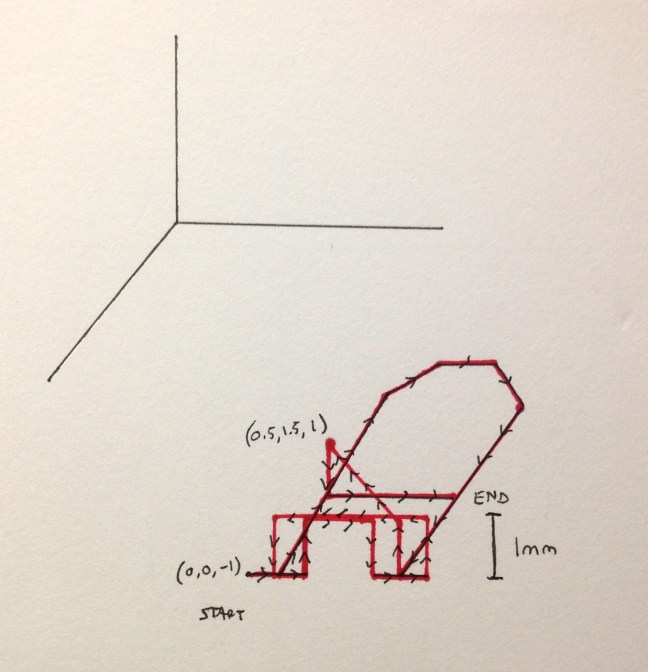 (0.5,1.5,1)
END
1mm
(0,0,-1)
START